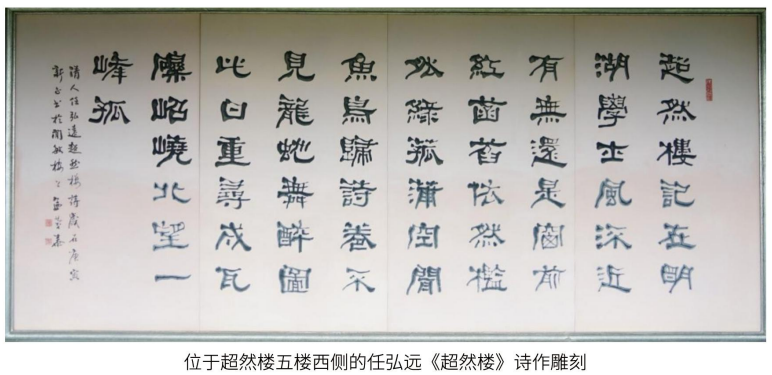 超然樓記在明
湖學士風深近
有無還是窗前
紅菡萏依然檻
外綠菰蒲空聞
魚鳥歸詩卷不
見龍蛇舞醉圖
此日重尋成瓦
礫岧嶢北望一
峰孤
清人任弘遠超然樓詩歲在庚寅
新正書於
位于超然楼五楼西侧的任弘远《超然楼》诗作雕刻